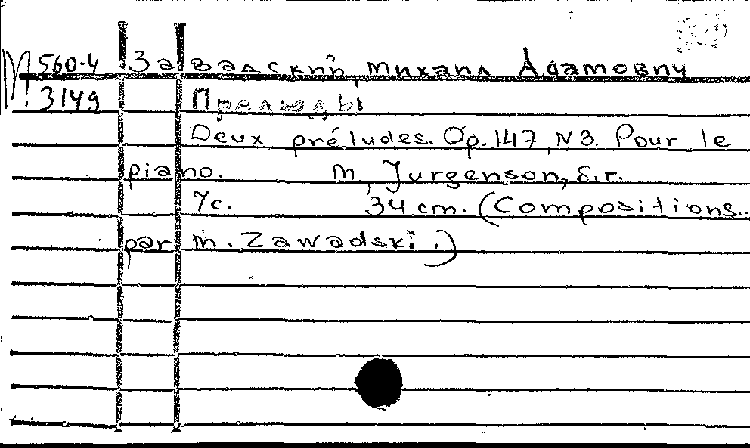 М 560-4 Завадский, Михаил Адамович
3149 Прелюды
Deux préludes. Op.147, N3. Pour le
piano. М., Jurgenson, s.r.
7с. 34 cm. (Compositions..
par M. Zawadski.)